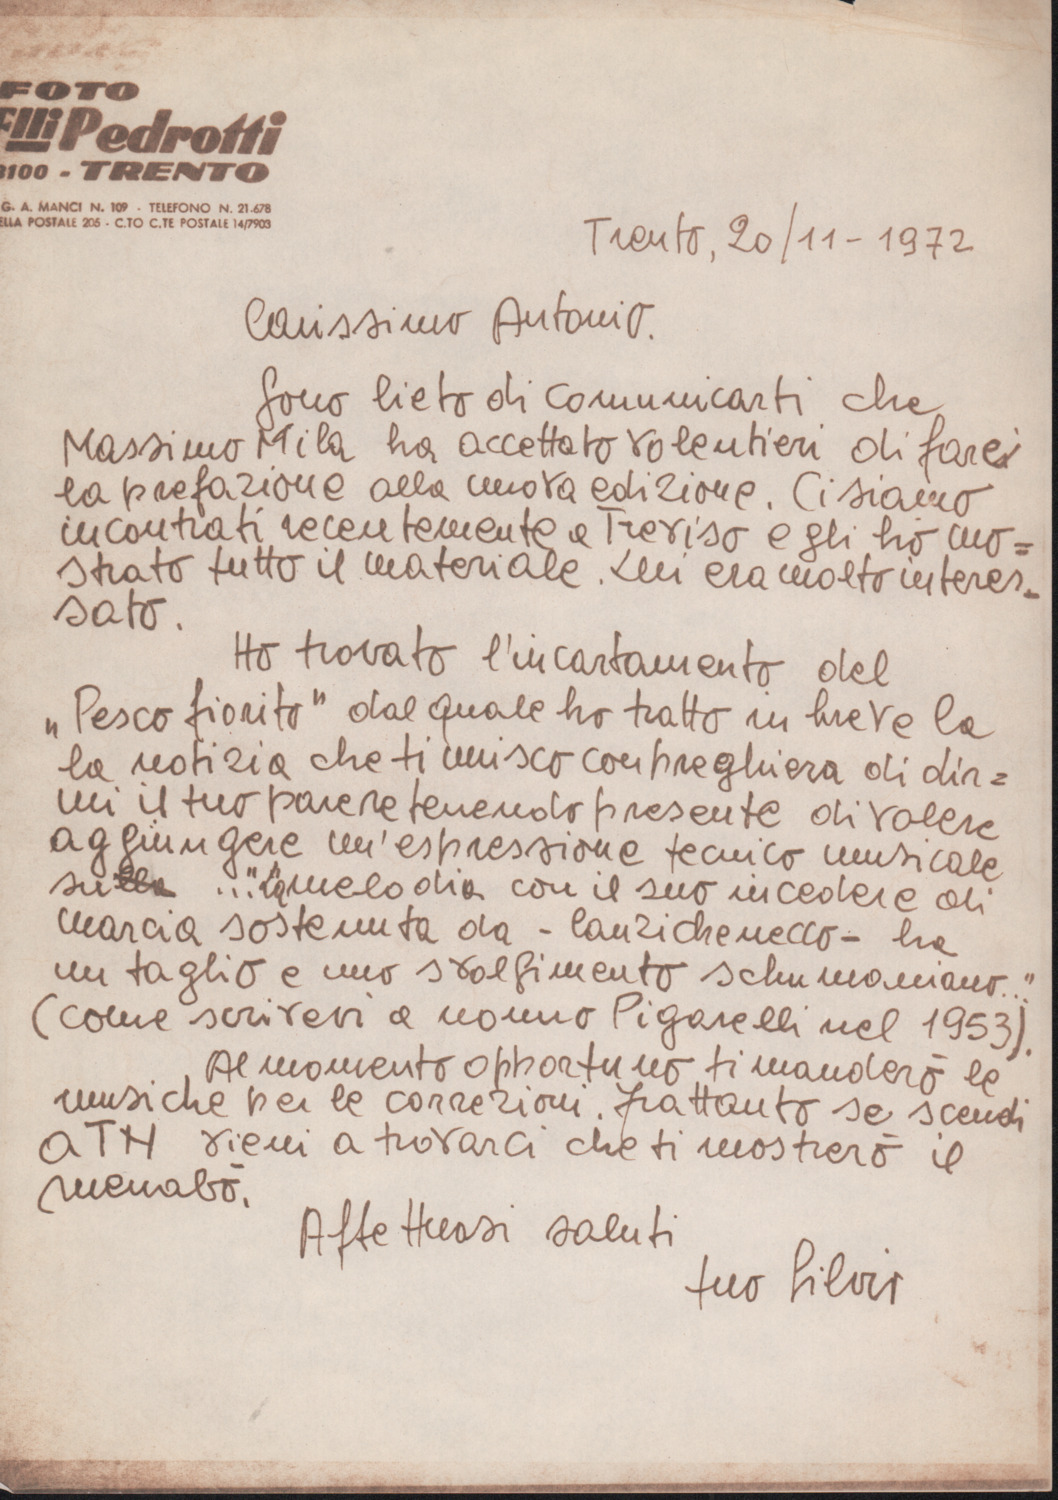 FOTO
Flli Pedrotti
8100 - TRENTO
G. A. MANCI N. 109 - TELEFONO N. 21.678
ELLA POSTALE 205 - C.TO C.TE POSTALE 14/7903
Trento, 20/11-1972
Carissimo Antonio.
Sono lieto di comunicarti che
Massimo Mila ha accettato volentieri di farci
la prefazione alla nuova edizione. Ci siamo
incontrati recentemente a Treviso e gli ho mo=
strato tutto il materiale. Lui era molto interes-
sato.
Ho trovato l'incartamento del
„Pesco fiorito" dal quale ho tratto in breve la
la notizia che ti unisco con preghiera di dir=
mi il tuo parere tenendo presente di volere
aggiungere un'espressione tecnico musicale
sulla ..."la melodia con il suo incedere di
marcia sostenuta da - lanzichenecco - ha
un taglio e uno svolgimento schumaniano..."
(come scrivevi a nonno Pigarelli nel 1953).
Al momento opportuno ti manderò le
musiche per le correzioni. Frattanto se scendi
a TN vieni a trovarci che ti mostrerò il
menabò.
Affettuosi saluti
tuo Silvio